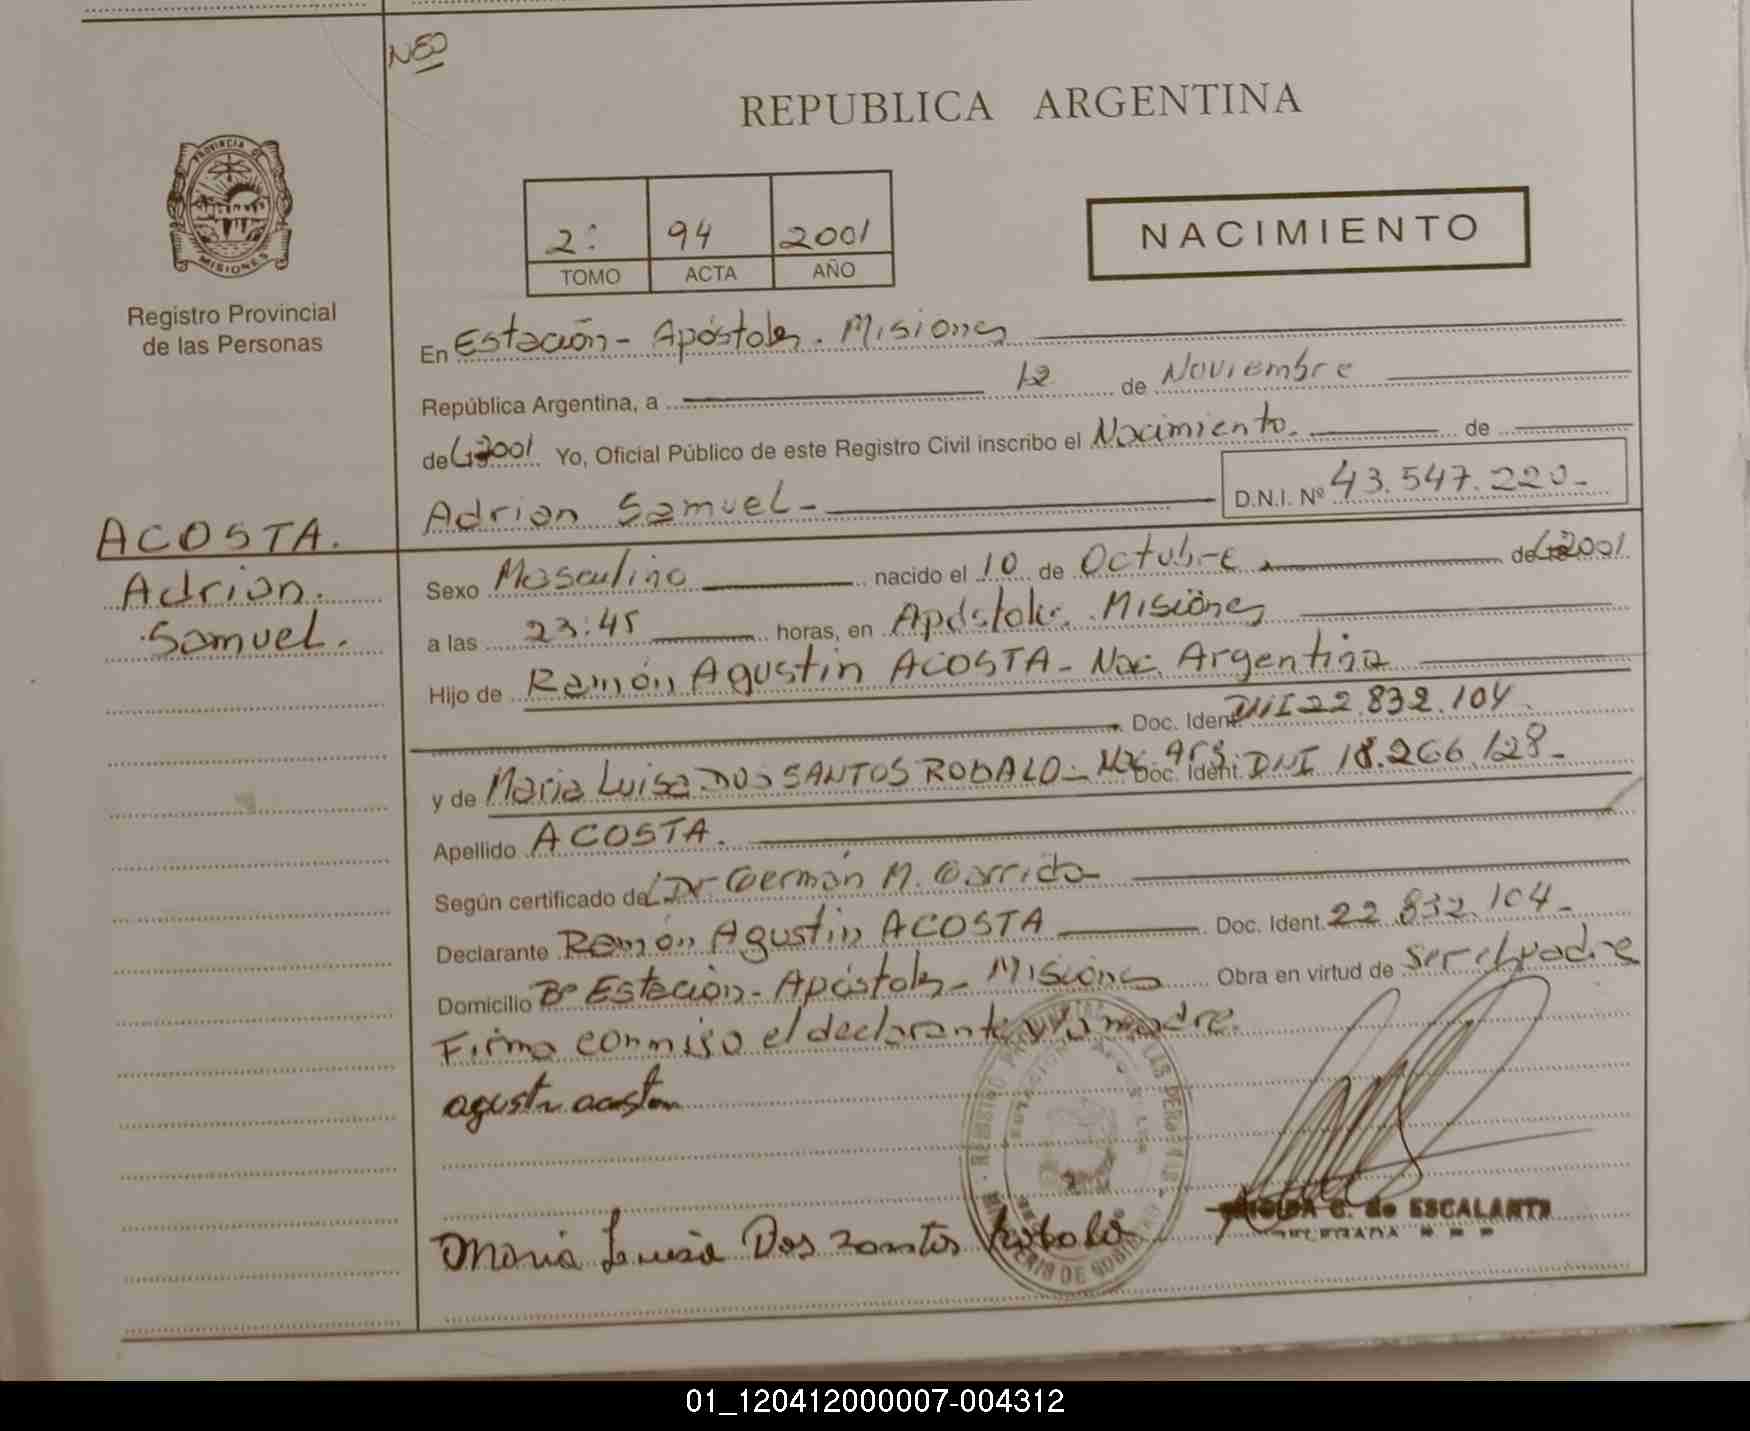 NEO
REPUBLICA ARGENTINA
PROVINCIA DE
MISIONES
Registro Provincial
de las Personas
2: 94 2001
TOMO ACTA AÑO
NACIMIENTO
En Estación - Apóstoles. Misiones
República Argentina, a 12 de Noviembre
de 2001 Yo, Oficial Público de este Registro Civil inscribo el Nacimiento. de
Adrian Samuel - D.N.I. Nº 43.547.220-
ACOSTA.
Adrian.
Samuel.
Sexo Masculino nacido el 10 de Octubre de 2001
a las 23:45 horas, en Apóstoles. Misiones
Hijo de Ramón Agustin ACOSTA - Nac. Argentina
Doc. Ident. DNI 22.832.104.
y de Maria Luisa DOS SANTOS ROBALO - Nac. Arg. Doc. Ident. DNI 18.266.128-
Apellido ACOSTA.
Según certificado del Dr German M. Garrido
Declarante Ramón Agustin ACOSTA Doc. Ident. 22.832.104-
Domicilio Bº Estación - Apóstoles - Misiones Obra en virtud de ser el padre
Firma conmigo el declarante y la madre.
agustin acosta
Maria Luisa Dos Santos Robalo
C. de ESCALANTE
01_120412000007-004312